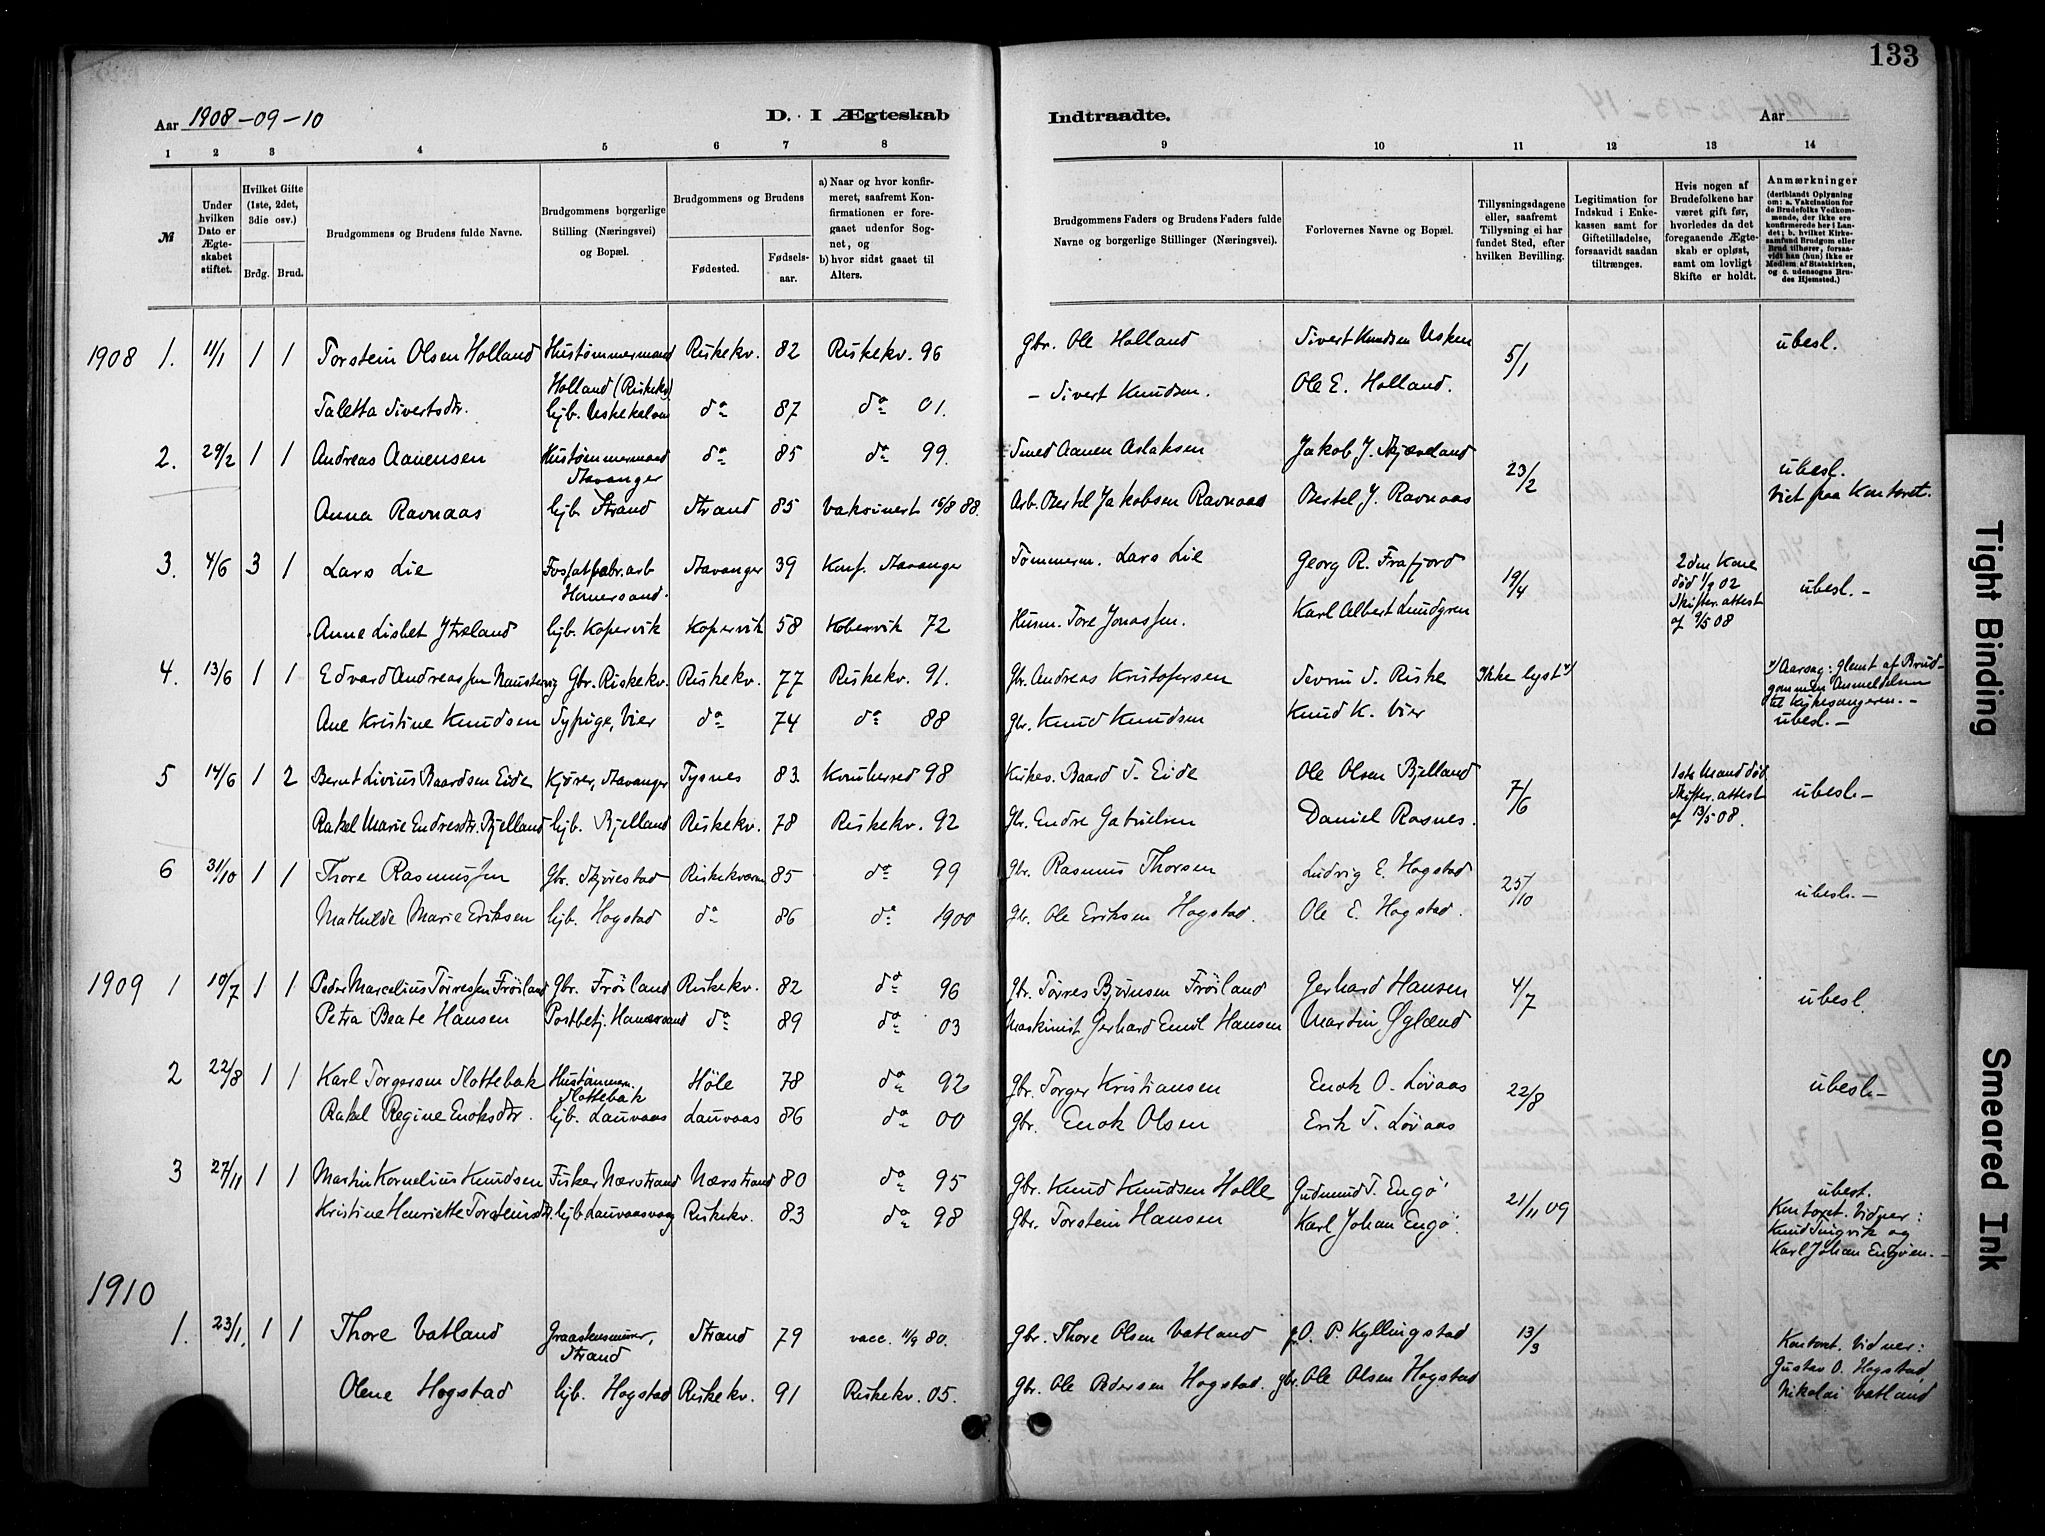 133
Aar 1908-09-10 D. I Ægteskab Indtraadte. Aar
1 2 3 4 5 6 7 8 9 10 11 12 13 14
№
Under hvilken Dato er Ægteskabet stiftet.
Hvilket Gifte (1ste, 2det, 3die osv.)
Brdg. Brud.
Brudgommens og Brudens fulde Navne.
Brudgommens borgerlige Stilling (Næringsvei) og Bopæl.
Brudgommens og Brudens
Fødested. Fødselsaar.
a) Naar og hvor konfirmeret, saafremt Konfirmationen er foregaaet udenfor Sognet, og
b) hvor sidst gaaet til Alters.
Brudgommens Faders og Brudens Faders fulde Navne og borgerlige Stillinger (Næringsvei).
Forlovernes Navne og Bopæl.
Tillysningsdagene eller, saafremt Tillysning ei har fundet Sted, efter hvilken Bevilling.
Legitimation for Indskud i Enkekassen samt for Giftetilladelse, forsaavidt saadan tiltrænges.
Hvis nogen af Brudefolkene har været gift før, hvorledes da det foregaaende Ægteskab er opløst, samt om lovligt Skifte er holdt.
Anmærkninger
(deriblandt Oplysning om: a. Vakcination for de Brudefolks Vedkommende, der ikke ere konfirmerede her i Landet; b. hvilket Kirkesamfund Brudgom eller Brud tilhører, forsaavidt han (hun) ikke er Medlem af Statskirken, og c. udensogns Brudes Hjemsted.)
1908 1. 11/1 1 1 Torstein Olsen Holland Hustømmermand Riskekv. 82 Riskekv. 96 Gbr. Ole Holland Sivert Knudsen Usken 5/1 ubesl.
Holland (Riskekv)
Taletta Sivertsdtr. hjb. Uskekalven do 87 do 01. - Sivert Knudsen. Ole E. Holland.
2. 29/2 1 1 Andreas Aanensen Hustømmermand do 85 do 99. Smed Aanen Aslaksen Jakob J. Skjæveland 23/2 ubesl.
Stavanger
Anna Ravnaas hjb. Strand Strand 85 Vaksinert 15/8 88. Arb. Bertel Jakobsen Ravnaas Bertel J. Ravnaas Viet paa Kontoret.
3. 4/6 3 1 Lars Lie Fosfatfabr.arb Stavanger 39 Konf. Stavanger Tømmerm. Lars Lie Georg R. Frafjord 19/4 2den Kone død 1/9 02 Skifteattest af 9/5 08 ubesl. -
Homersand.
Anne Lisbet Ytreland hjb. Kopervik Kopervik 58 Kobervik 72 Husm. Tore Jonassen. Karl Albert Lundgren
4. 13/6 1 1 Edvard Andreassen Naustervig Gbr. Riskekv. Riskekv. 77 Riskekv. 91. Gbr. Andreas Kristofersen Sevrin S. Riske Ikke lyst x) x) Aarsag: glemt af Brudgommen Anmeldelsen til Kirkesangeren. -
Ane Kristine Knudsen Sypige, Vier do 74 do 88 Gbr. Knud Knudsen Knud K. Vier ubesl. -
5 14/6 1 2 Bernt Livius Baardsen Eide Kjører, Stavanger Tysnes 83 Kvinherred 98 Kirkes. Baard T. Eide Ole Olsen Bjelland 7/6 1ste Mand død Skifteattest af 13/5 08. ubesl. -
Rakel Marie Endresdtr. Bjelland hjb. Bjelland Riskekv. 78 Riskekv. 92 Gbr. Endre Gabrielsen Daniel Rosnes.
6 31/10 1 1 Thore Rasmussen Gbr. Skjørestad Riskekværn 85 do 99 Gbr. Rasmus Thorsen Ludvig E. Hogstad 25/10 ubesl. -
Mathilde Marie Eriksen hjb. Hogstad do 86 do 1900 Gbr. Ole Eriksen Hogstad. Ole E. Hogstad.
1909 1 10/7 1 1 Peder Marcelius Tørressen Frøiland Gbr. Frøiland Riskekv. 82 do 96 Gbr. Tørres Bjørnsen Frøiland Gerhard Hansen 4/7 ubesl.
Petra Beate Hansen Postbetj. Homersand do 89 do 03 Maskinist Gerhard Emil Hansen Martin Øglænd
2 22/8 1 1 Karl Torgersen Slottebak Hustømmerm. Høle 78 do 92 Gbr. Torger Kristiansen Enok O. Løvaas 22/8 ubesl. -
Slottebak
Rakel Regine Enoksdtr. hjb. Lauvaas Lauvaas 86 do 00 Gbr. Enok Olsen Erik T. Løvaas
3 27/11 1 1 Martin Kornelius Knudsen Fisker Nærstrand Nærstrand 80 do 95 Gbr. Knud Knudsen Halle Gudmund T. Engø 21/11 09 ubesl.
Kristine Henriette Torsteinsdtr. hjb. Lauvaasvaag Riskekv. 83 do 98 Gbr. Torstein Hansen Karl Johan Engø. Kontoret. Vidner:
Knud Tingvik og
Karl Johan Engøen. -
1910
1. 23/1. 1 1 Thore Vatland Graastensmurer, Strand 79 vacc. 11/9 80. Gbr. Thore Olsen Vatland O. P. Kyllingstad 13/3 Kontoret. Vidner:
Strand
Olene Hogstad hjb. Hogstad Riskekv. 91 Riskekv. 05. Gbr. Ole Pedersen Hogstad. gbr. Ole Olsen Hogstad Gustav O. Hogstad,
Nikolai Vatland
Tight Binding
Smeared Ink